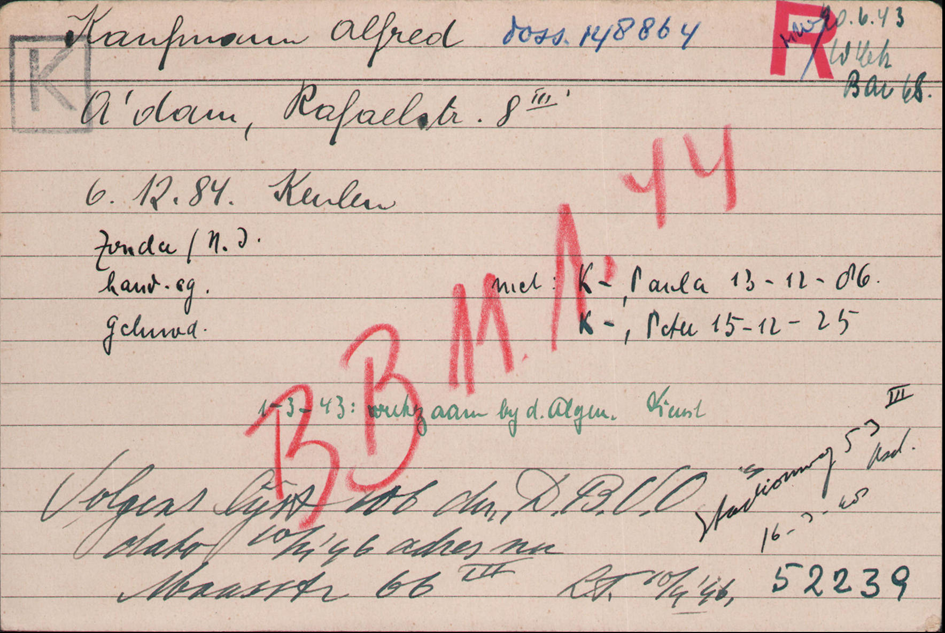 Kaufmann Alfred doss. 148864
R 20.6.43
K
Bar 68.
A'dam, Rafaelstr. 8 III
6. 12. 84. Keulen
zonder / N. I.
hand. ag. met: K-, Paula 13-12-86.
Gehuwd. K-, Peter 15-12-25
BB 11.1.44
1-3-43: werkzaam by d. Algem. Dienst
Stationweg 53 III
Asd.
Volgens lijst 106 der D.B.V.O
dato 10/4'46 adres nu
Maasstr 66 III
10/4'46.
52239